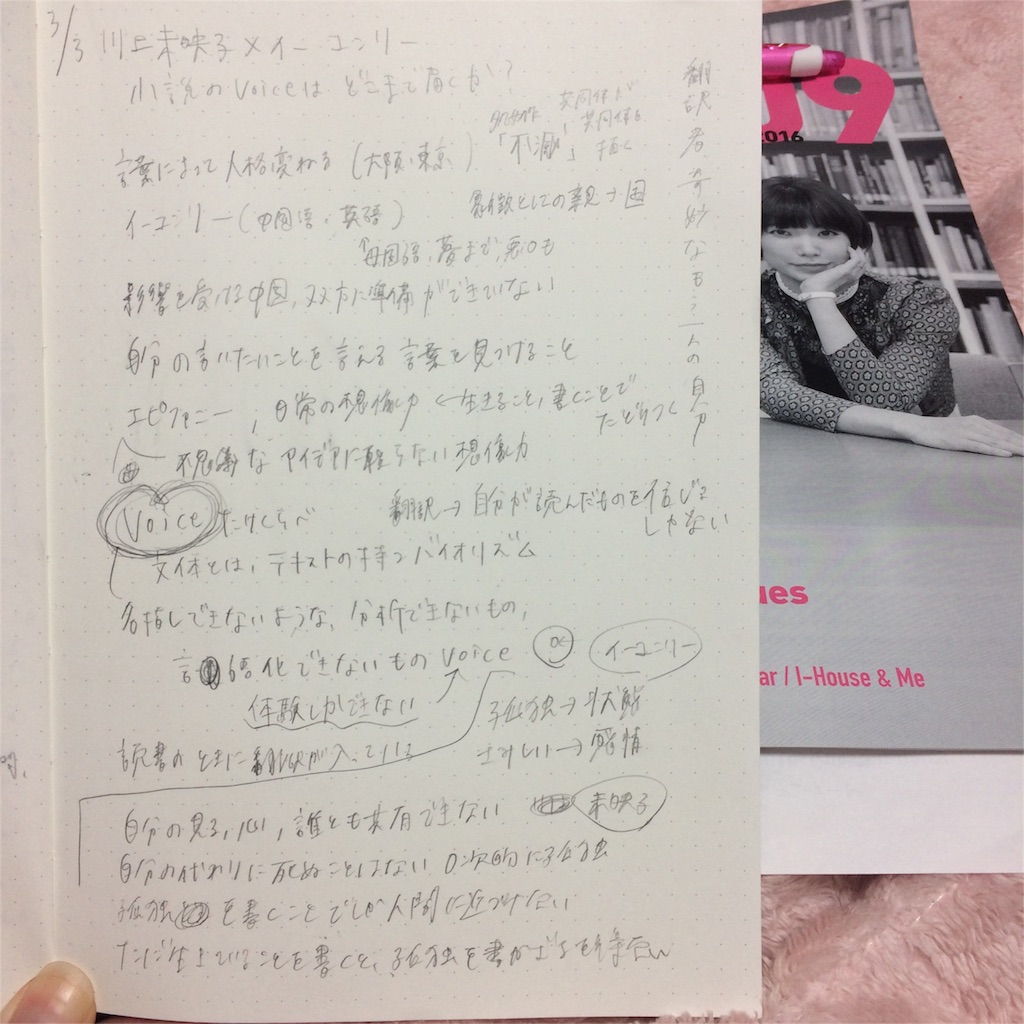 3/3 川上未映子×イーユンリー
小説のVoiceは どこまで届くか?
共同体が
共同体を
「不滅」描く
言葉によって人格変わる (大阪・東京)
象徴としての親→国
イーユンリー (中国語・英語)
↑母国語、夢まで、悪口も
影響を受ける中国、双方に準備ができていない
自分の言いたいことを言える言葉を見つけること
エピファニー, 日常の想像力 ← 生きること, 書くことで
たどりつく
不思議な アイデアに頼らない想像力
Voice たけくらべ
翻訳→自分が読んだものを信じる
しかない
文体とは, テキストの持つバイオリズム
名指しできないような, 分析できないもの,
言語化できないもの voice
イーユンリー
体験しかできない
孤独→状態
さみしい→感情
読書のときに翻訳が入っている
自分の見る, 心, 誰とも共有できない
未映子
自分の代わりに死ぬことはない 0次的に孤独
孤独を書くことでしか人間に近づけない
ただ生きていることを書くと, 孤独を書かざるを得ない
翻訳者、奇妙なもう一人の自分
2016
ues
ar / I-House & Me